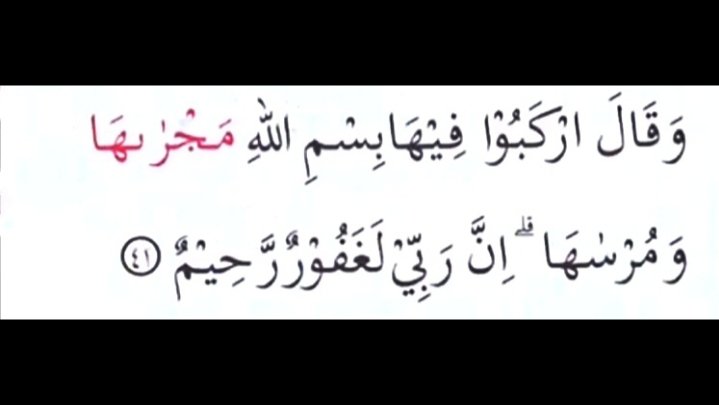 وَقَالَ ارْكَبُوْا فِيْهَا بِسْمِ اللّٰهِ مَجْرٰىهَا
وَمُرْسٰىهَا ۗ اِنَّ رَبِّيْ لَغَفُوْرٌ رَّحِيْمٌ ٤١